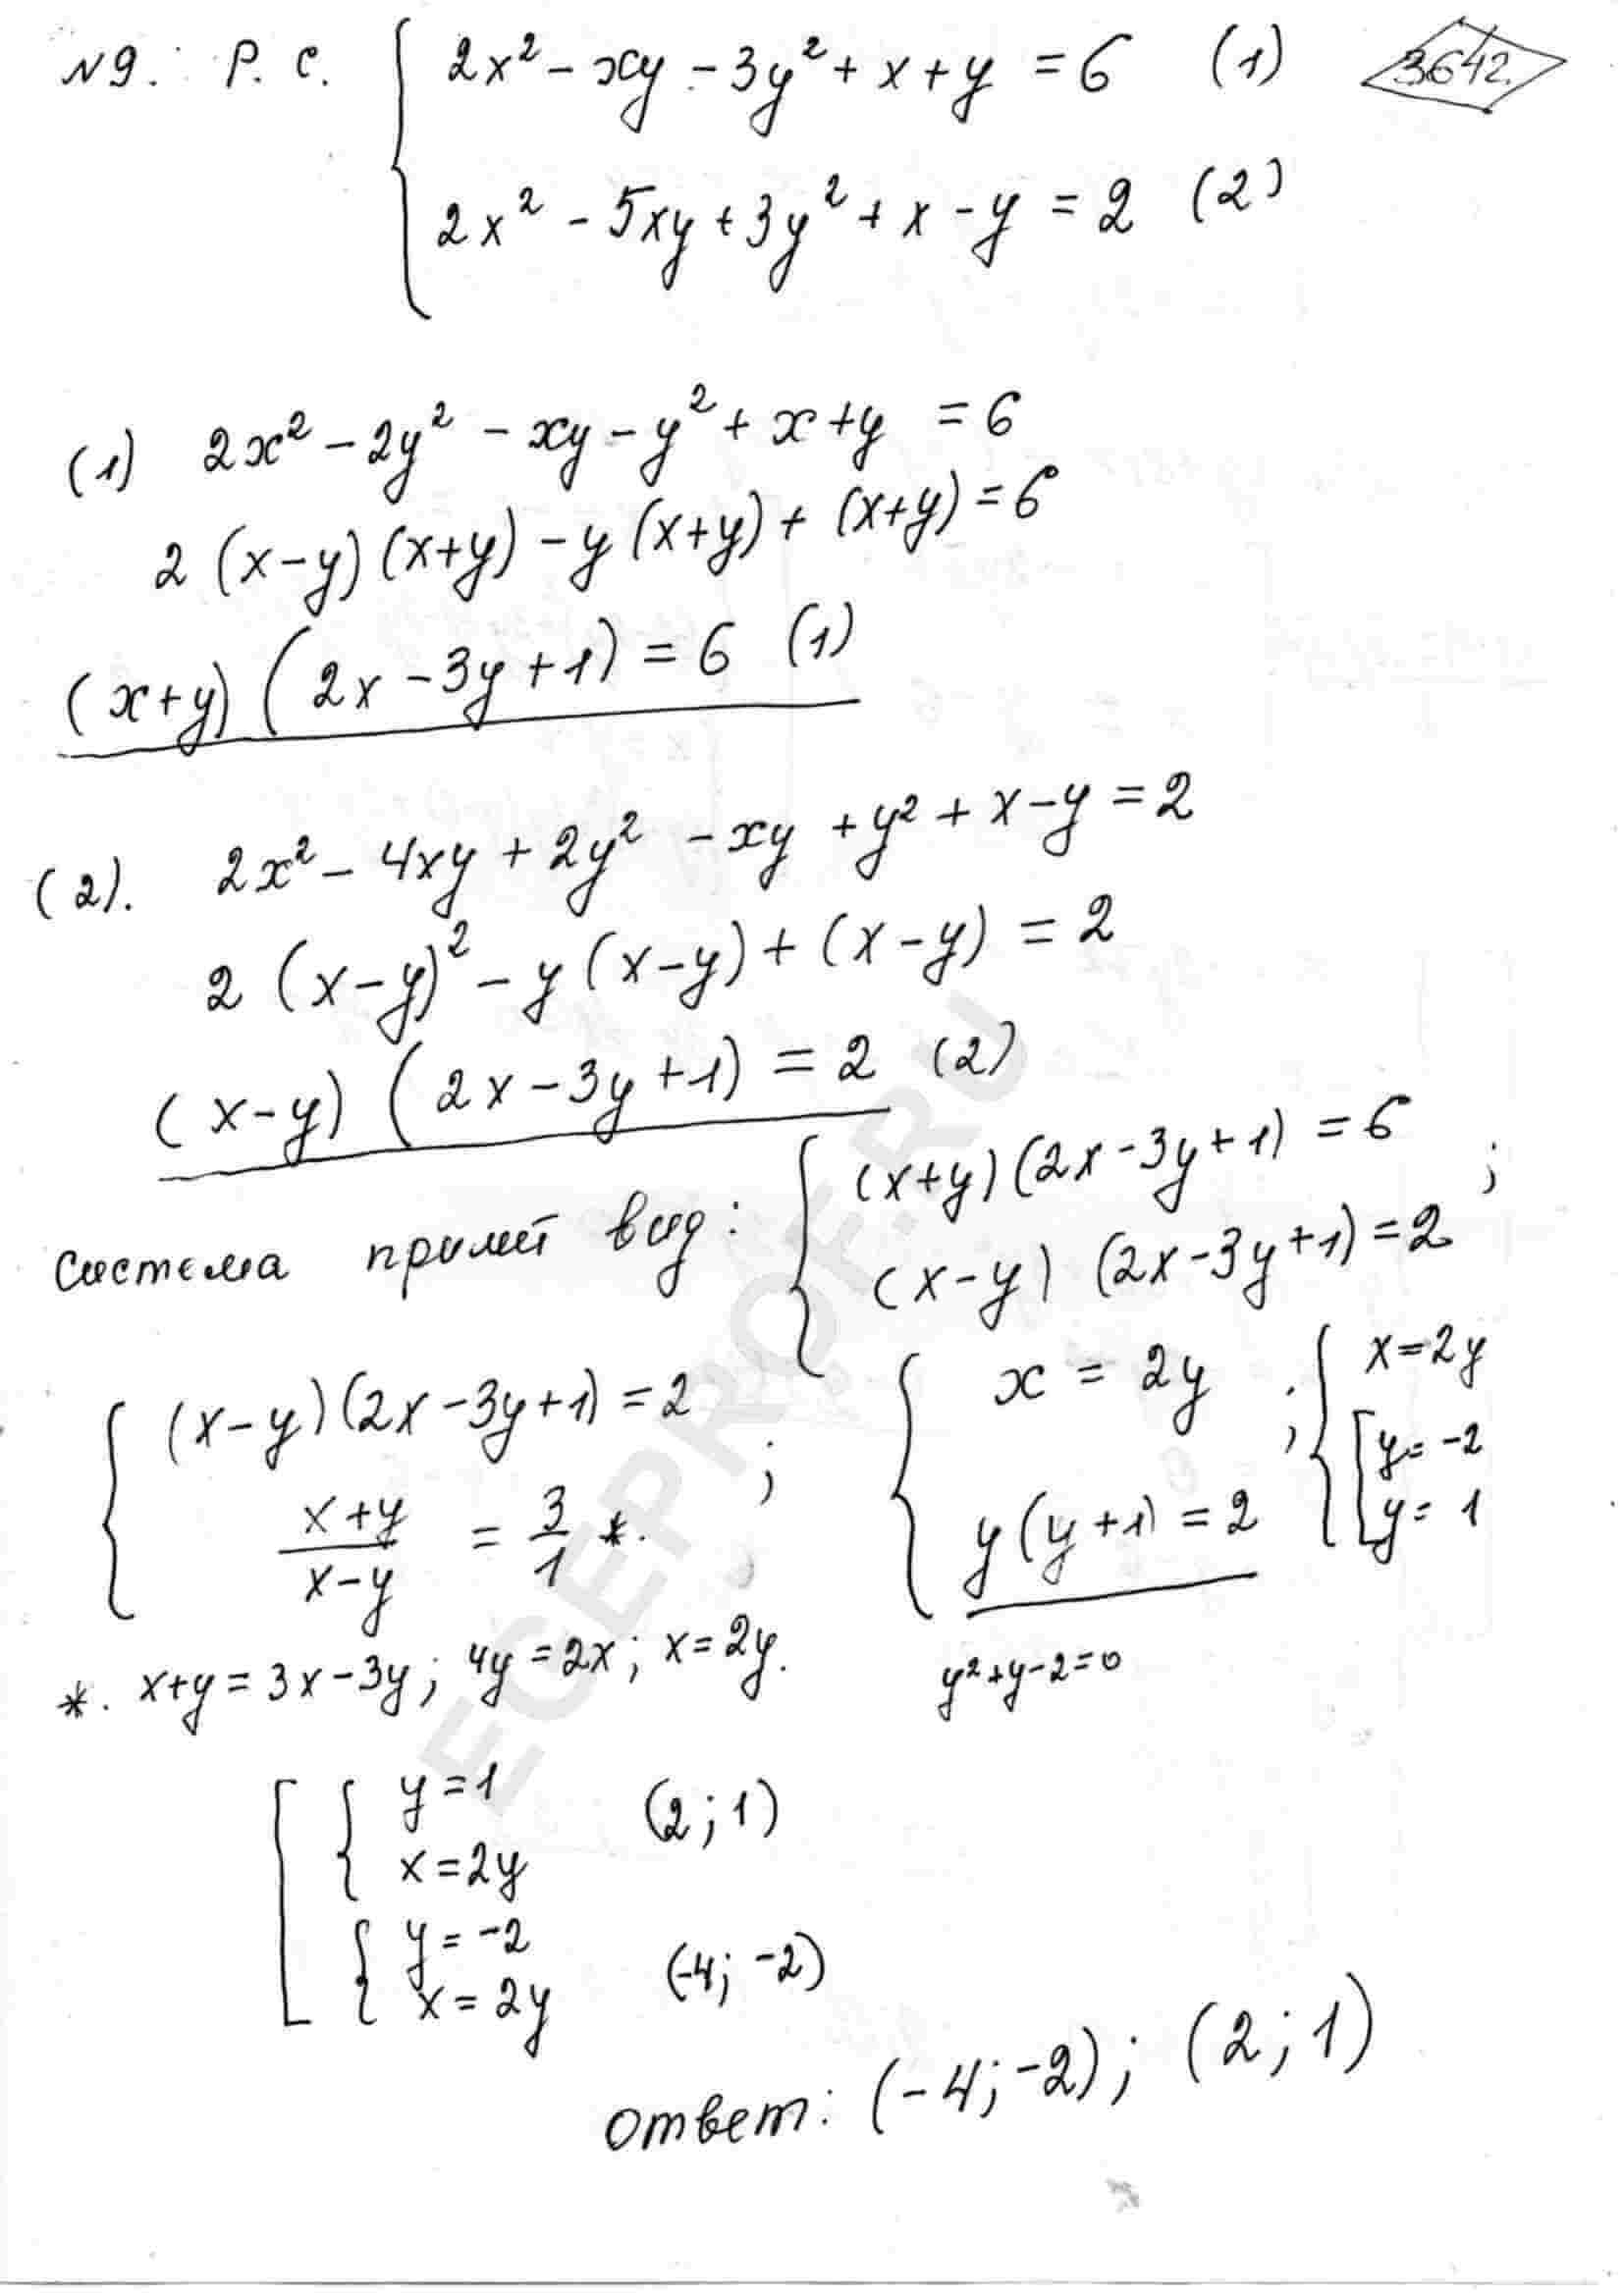 №9. Р. С. { 2x² - xy - 3y² + x + y = 6 (1) 3642.
2x² - 5xy + 3y² + x - y = 2 (2)
(1) 2x² - 2y² - xy - y² + x + y = 6
2 (x-y) (x+y) - y (x+y) + (x+y) = 6
(x+y) (2x - 3y + 1) = 6 (1)
(2). 2x² - 4xy + 2y² - xy + y² + x - y = 2
2 (x-y)² - y (x-y) + (x-y) = 2
(x-y) (2x - 3y + 1) = 2 (2)
система примет вид: { (x+y) (2x - 3y + 1) = 6 ;
(x-y) (2x - 3y + 1) = 2
{ (x-y) (2x - 3y + 1) = 2 ; { x = 2y ; { x = 2y
x+y / x-y = 3/1 *. y (y+1) = 2 [ y = -2
y = 1
*. x+y = 3x - 3y; 4y = 2x; x = 2y. y² + y - 2 = 0
[ { y = 1 (2; 1)
x = 2y
{ y = -2 (-4; -2)
x = 2y
ответ: (-4; -2); (2; 1)
EGEPROF.RU